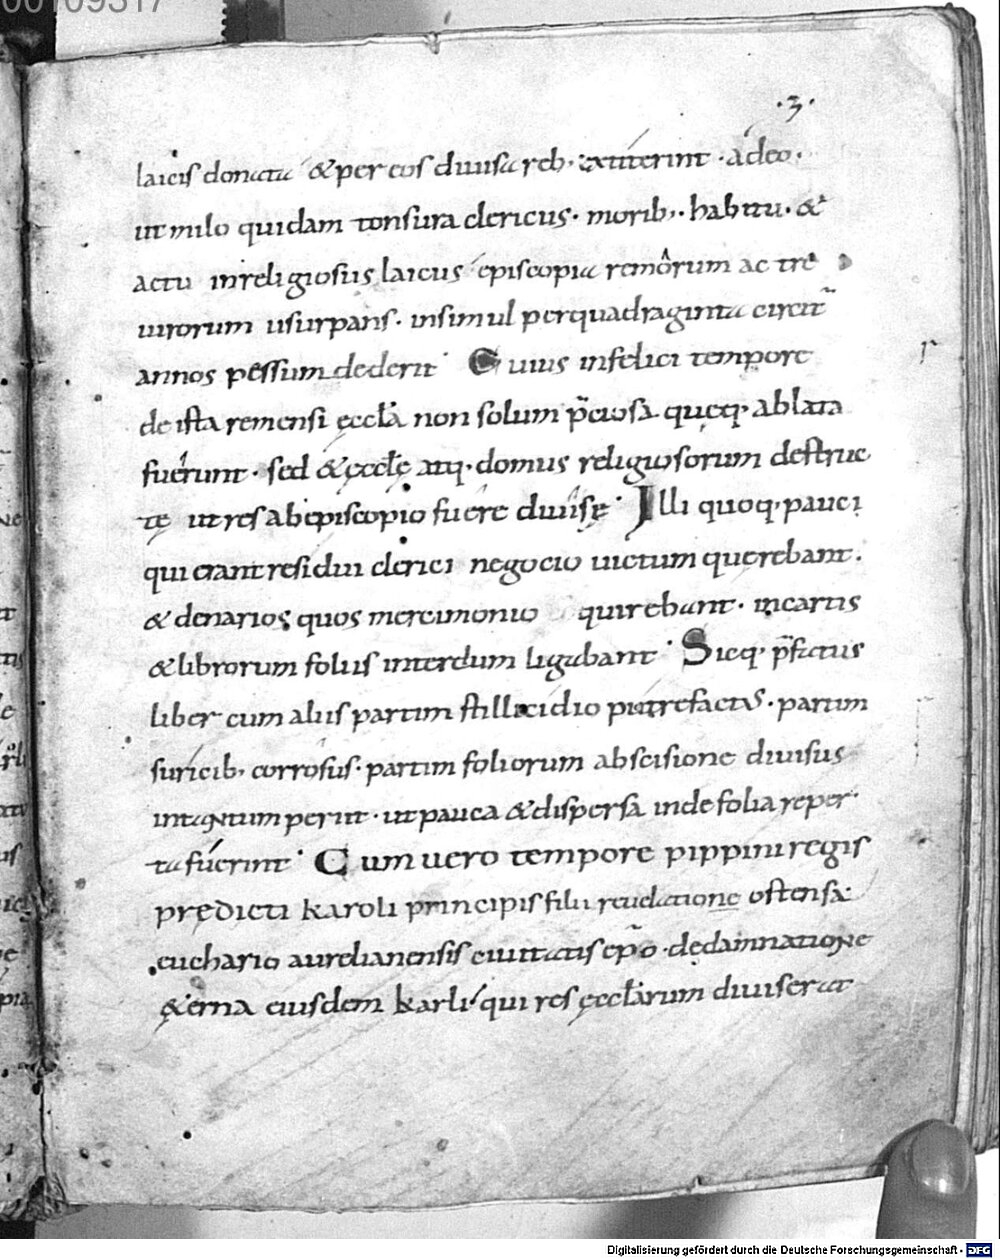 00109317
·3·
laicis donata & per eos diuisa reb· extiterint · adeo·
ut milo quidam tonsura clericus· morib;· habitu· &
actu inreligiosus laicus episcopia remorum ac tre
uirorum usurpans· insimul per quadraginta circit̄
annos pessum dederit· Cuius infelici tempore
de ista remensi ęccła non solum p̄ciosa queq· ablata
fuerunt· sed & ęccłę atq· domus religiosorum destruc
tę ut res ab episcopio fuere diuisę· Illi quoq· pauci
qui erant residui clerici negocio uictum querebant·
& denarios quos mercimonio quirebant· in cartis
& librorum foliis interdum ligabant· Sicq· p̄fatus
liber cum aliis partim stillicidio putrefactus· partim
suricib; corrosus· partim foliorum abscisione diuisus
intantum periit· ut pauca & dispersa inde folia reper
ta fuerint· Cum uero tempore pippini regis
prędicti karoli principis filii reuelatione ostensa
euchario aurelianensis ciuitatis ep̄o · de damnatione
&erna eiusdem karli qui res ęccłarum diuiserat
Digitalisierung gefördert durch die Deutsche Forschungsgemeinschaft - DFG